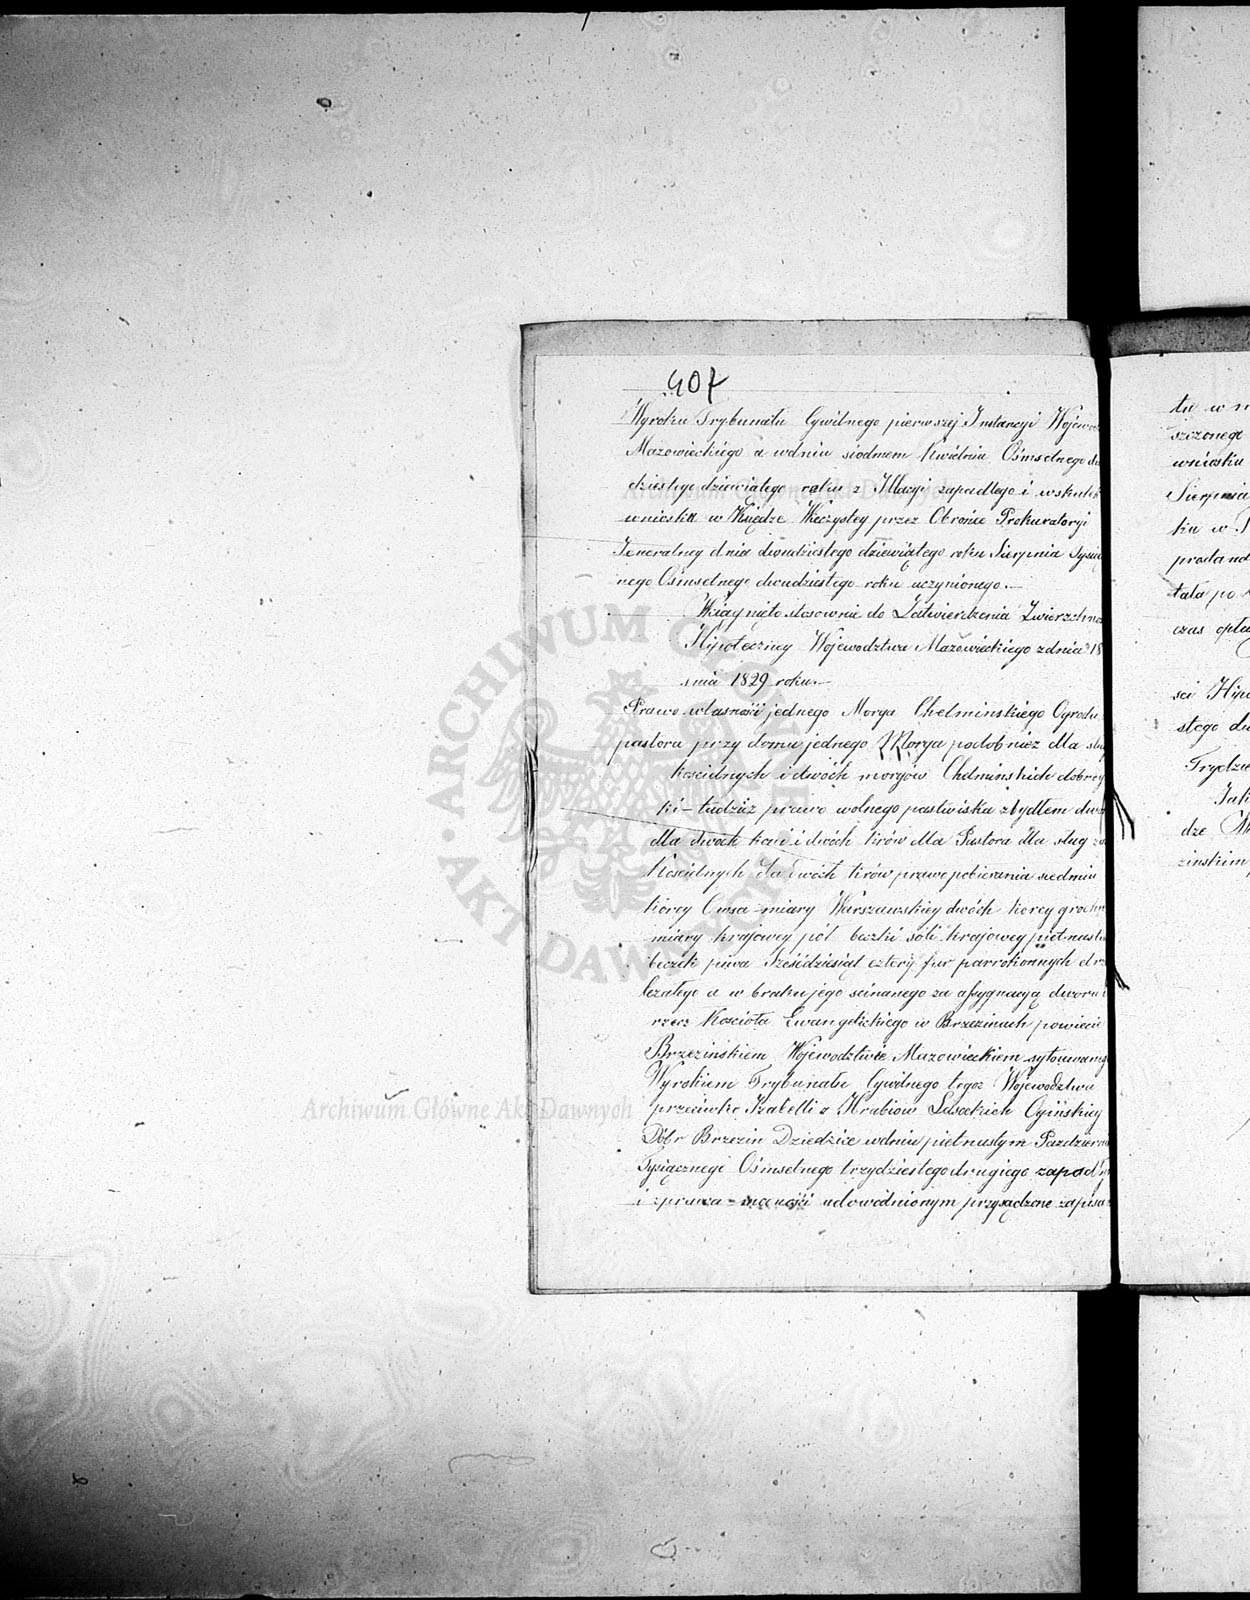 407
Wyroku Trybunału Cywilnego pierwszej Instancyi Wojewod
Mazowieckiego a wdniu siodmem Kwietnia Ośmsetnego dw
dziestego dziewiątego roku z Illacyi zapadłego i wskutek
wniosku w Księdze Wieczystey przez Obrońce Prokuratoryi
Jeneralney dnia dwudziestego dziewiątego roku Sierpnia Tysią
nego Ośmsetnego dwudziestego roku uczynionego.—
Wciągnięto stosownie do Zatwierdzenia Zwierzchno
Hipoteczney Województwa Mazowieckiego zdnia 18
snia 1829 roku.—
Prawo własności jednego Morga Chełminskiego Ogrodu
pastora przy domu jednego Morga podobnież dla słu
kościelnych i dwóch morgów Chełminskich dobrey
ki – tudzież prawo wolnego pastwiska z bydłem dw
dla dwóch koni i dwóch krów dla Pastora dla sług
Kościelnych dla dwóch krów prawo pobierania siedmiu
korcy Owsa – miary Warszawskiey dwóch korcy grochu
miary krajowey pół beczki soli krajowey pietnastu
beczek piwa Sześćdziesiąt cztery fur parrokonnych drz
leżałego a w braku jego scinanego za assygnacyą dworu
rzecz Kościoła Ewangelickiego w Brzezinach powiecie
Brzezińskiem Województwie Mazowieckiem sytuowanego
Wyrokiem Trybunału Cywilnego tegoż Województwa
przeciwko Izabelli z Hrabiow Lasockich Ogińskiey
Dóbr Brzezin Dziedzice wdniu pietnastym Pazdziern
Tysiącznego Ośmsetnego trzydziestego drugiego zapadł
i zprawa – udowodnionym przysądzone zapisa
tu w
szczonego
wniosku
Sierpnia
ku w
tała po
czas opła
sci Hip
stego du
Trydzie
Jak
dze
zinskim
ARCHIWUM GŁÓWNE AKT DAWNYCH
Archiwum Główne Akt Dawnych
Archiwum Główne Akt Dawnych